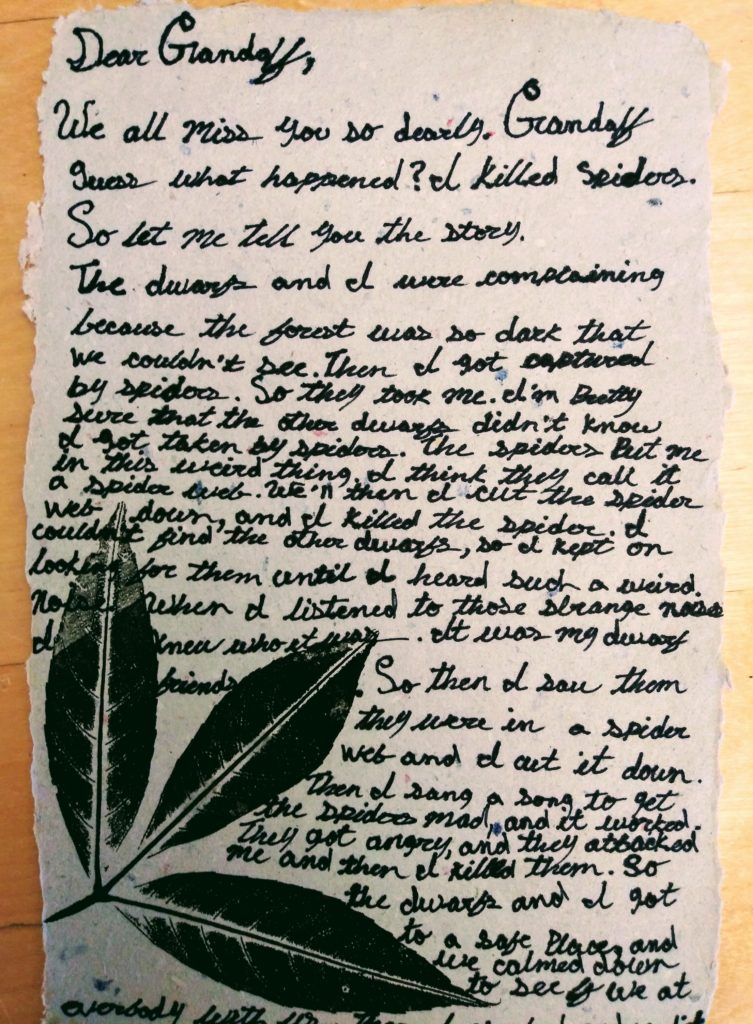 Dear Grandaff,
We all miss you so dearly. Grandaff
guess what happened? I killed spiders.
So let me tell you the story.
The dwarfs and I were complaining
because the forest was so dark that
we couldn't see. Then I got captured
by spiders. So they took me. I'm Pretty
sure that the other dwarfs didn't know
I got taken by spiders. The spiders Put me
in this weird thing, I think they call it
a spider web. We'll then I cut the spider
web down, and I killed the spider. I
couldn't find the other dwarfs, so I kept on
looking for them until I heard such a weird.
When I listened to those strange noise
I knew who it was. It was my dwarf
friends. So then I saw them
they were in a spider
web and I cut it down.
Then I sang a song to get
the spiders mad, and it worked.
they got angry, and they attacked
me and then I killed them. So
the dwarfs and I got
to a safe Place, and
we calmed down
to see if we at
everbody with